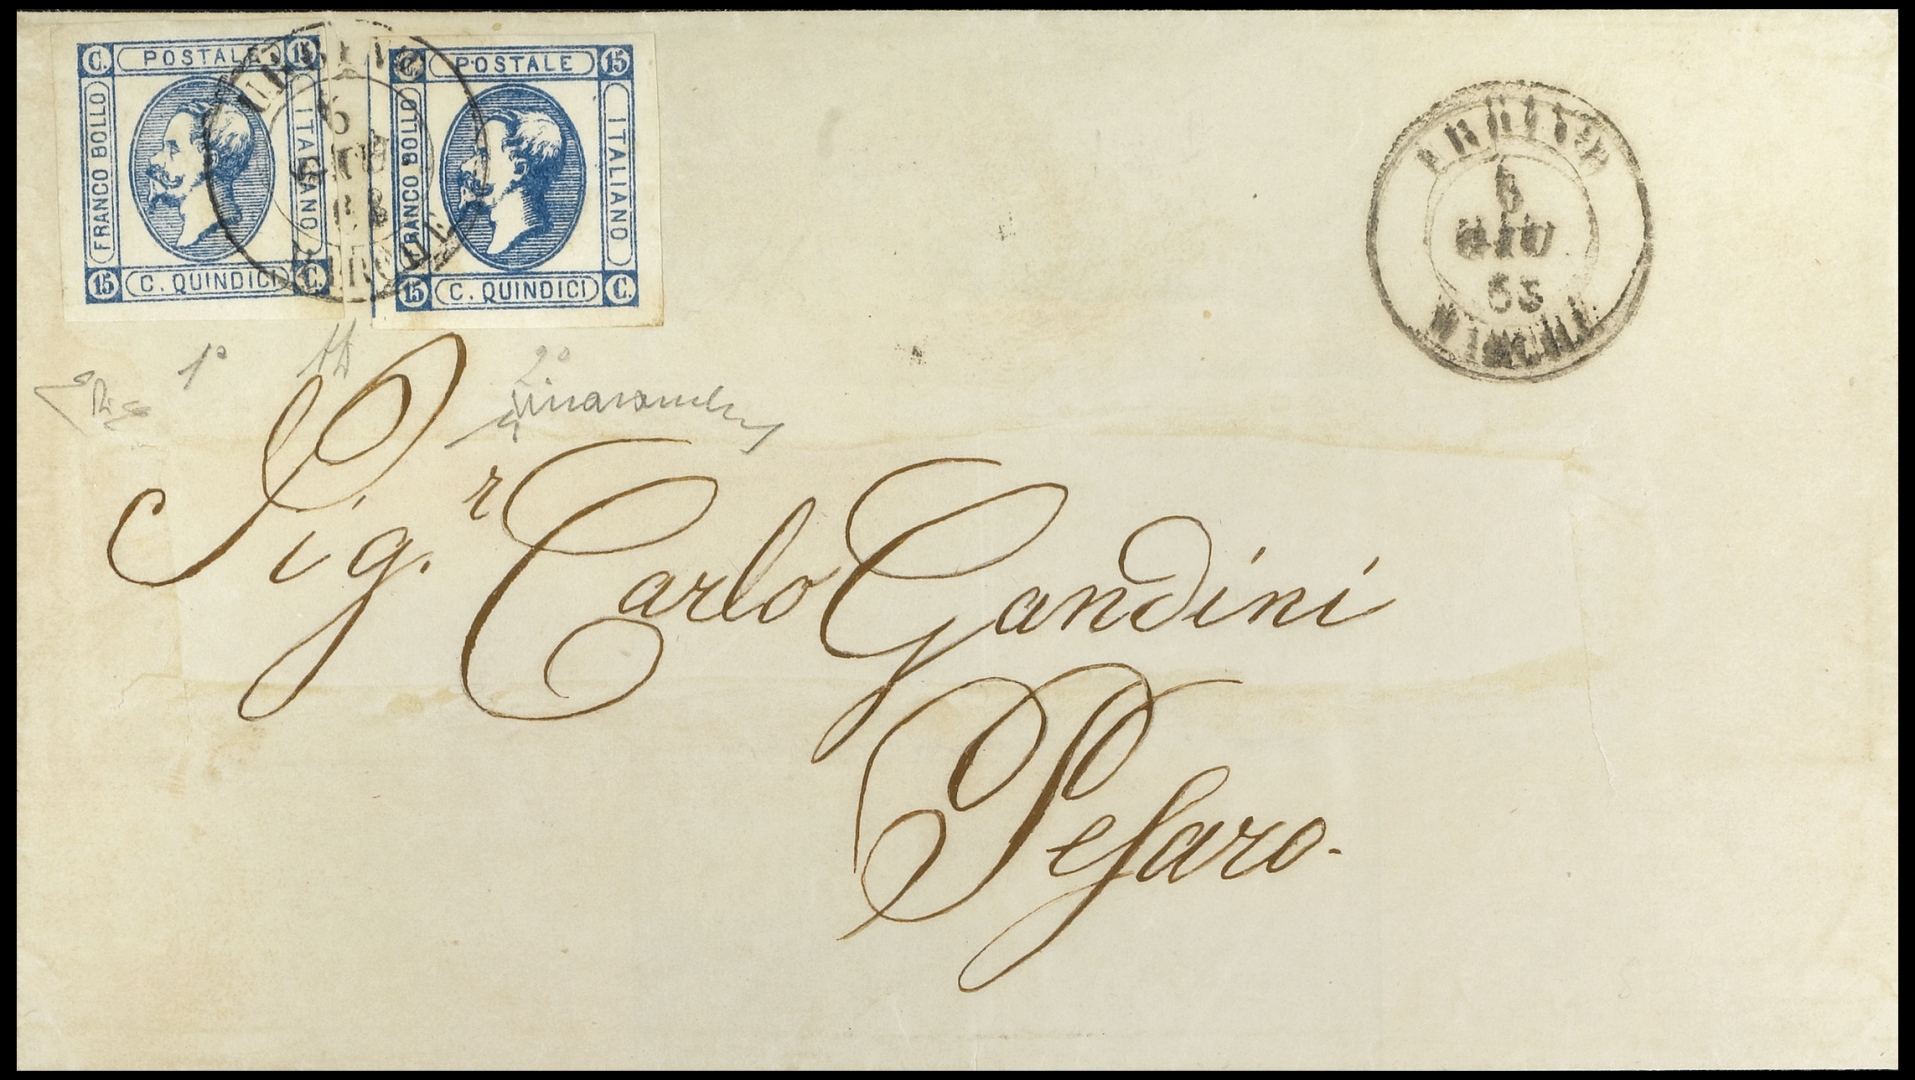 C. POSTALE 15
FRANCO BOLLO
ITALIANO
15 C. QUINDICI C.
C. POSTALE 15
FRANCO BOLLO
ITALIANO
15 C. QUINDICI C.
URBINO
6
GIU
63
6
GIU
63
1º
2º
Sig.r Carlo Gandini
Pesaro.